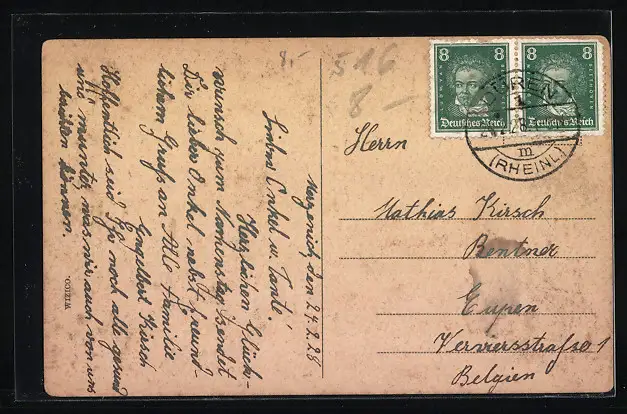 8,-
516
8 -
8
8
BEETHOVEN
Deutsches Reich
Deutsches Reich
DÜREN
(RHEINL)
m
Merzenich, den 24.2.28
Liebes Onkel u. Tante!
Herzlichen Glück-
wunsch zum Namenstag sendet
Dir lieber Onkel nebst freund-
lichem Gruß an Alle Familie
Engelbert Kirsch
Hoffentlich seid Ihr noch alle gesund
und munter, was wir auch von uns
können.
Herrn
Mathias Kirsch
Rentner
Eupen
Verviersstraße 1
Belgien